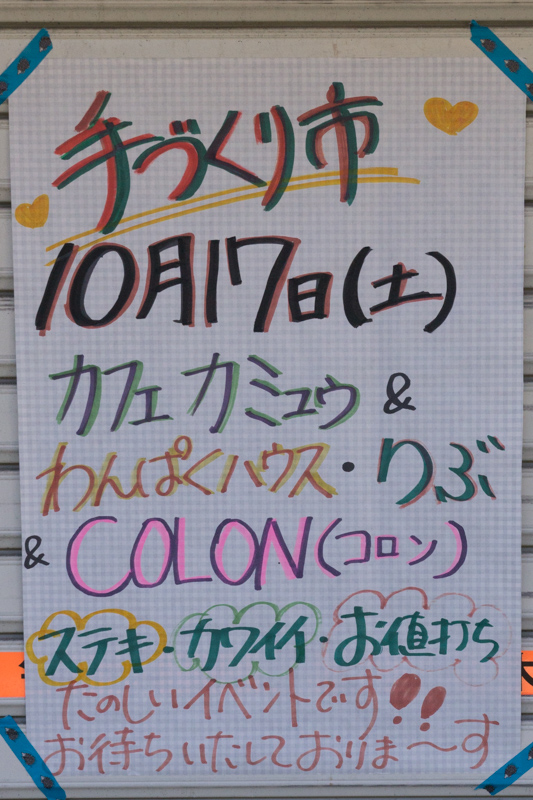 手づくり市
10月17日(土)
カフェ カミュウ &
わんぱくハウス・りぶ
& COLON(コロン)
ステキ・カワイイ・お値打ち
たのしいイベントです!!
お待ちいたしておりま〜す